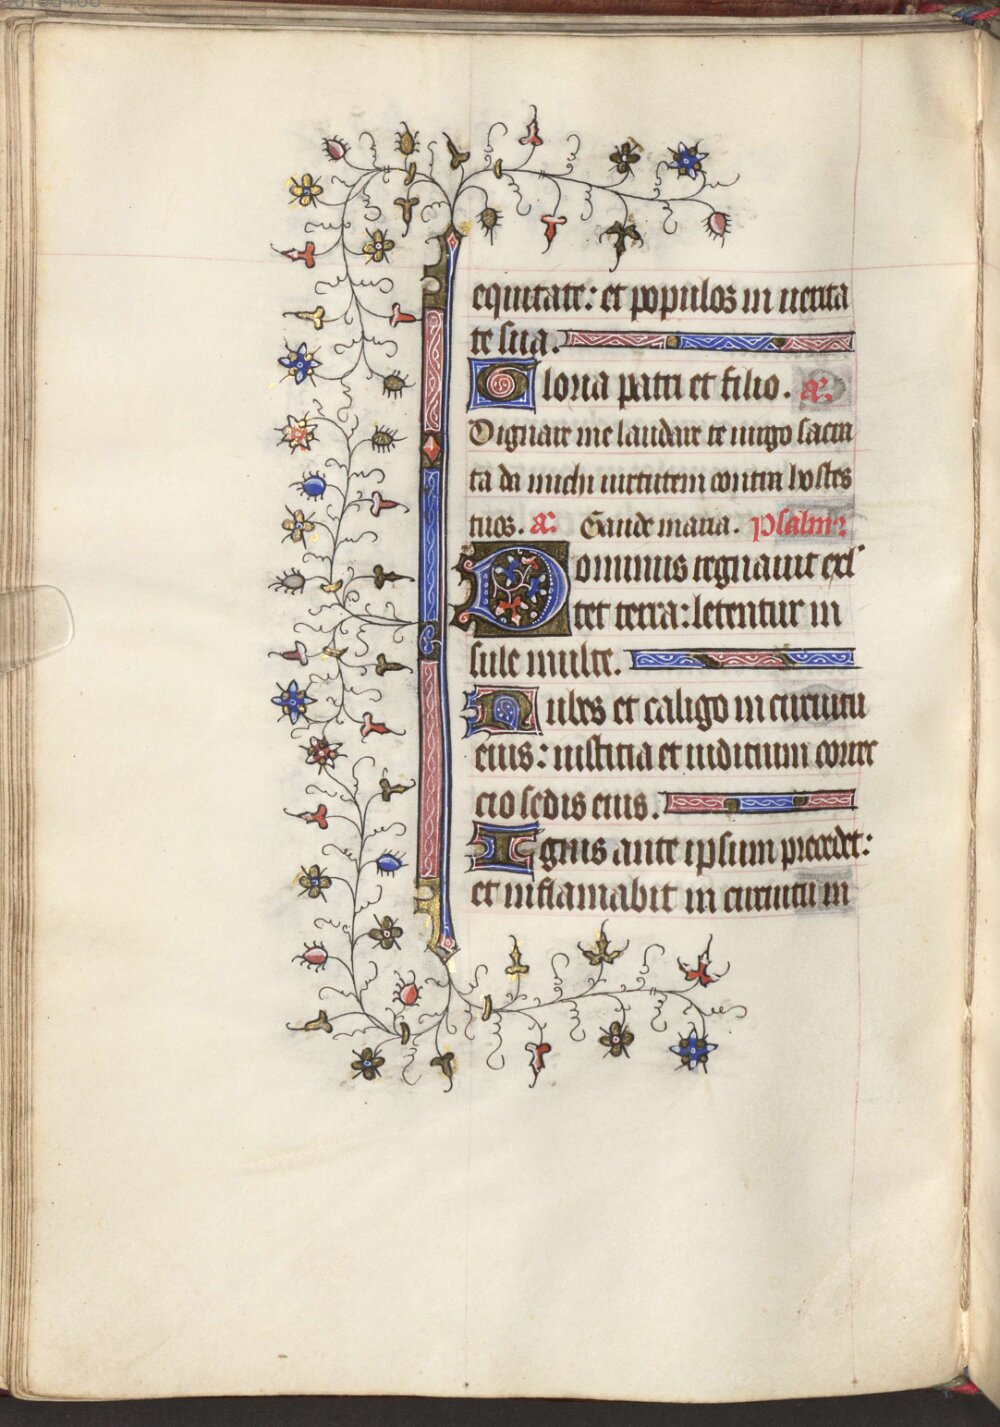 equitate: et populos in uerita
te sua.
Gloria patri et filio. a͛.
Dignare me laudare te uirgo sacra
ta da michi uirtutem contra hostes
tuos. a͛. Gaude maria. psalmꝰ
Dominus regnauit exl'
tet terra: letentur in
sule multe.
Nubes et caligo in circuitu
eius: iusticia et iudicium correc
cio sedis eius.
Ignis ante ipsum precedet:
et inflamabit in circuitu in